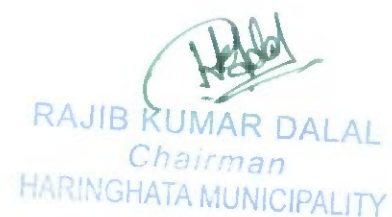 RAJIB KUMAR DALAL
Chairman
HARINGHATA MUNICIPALITY